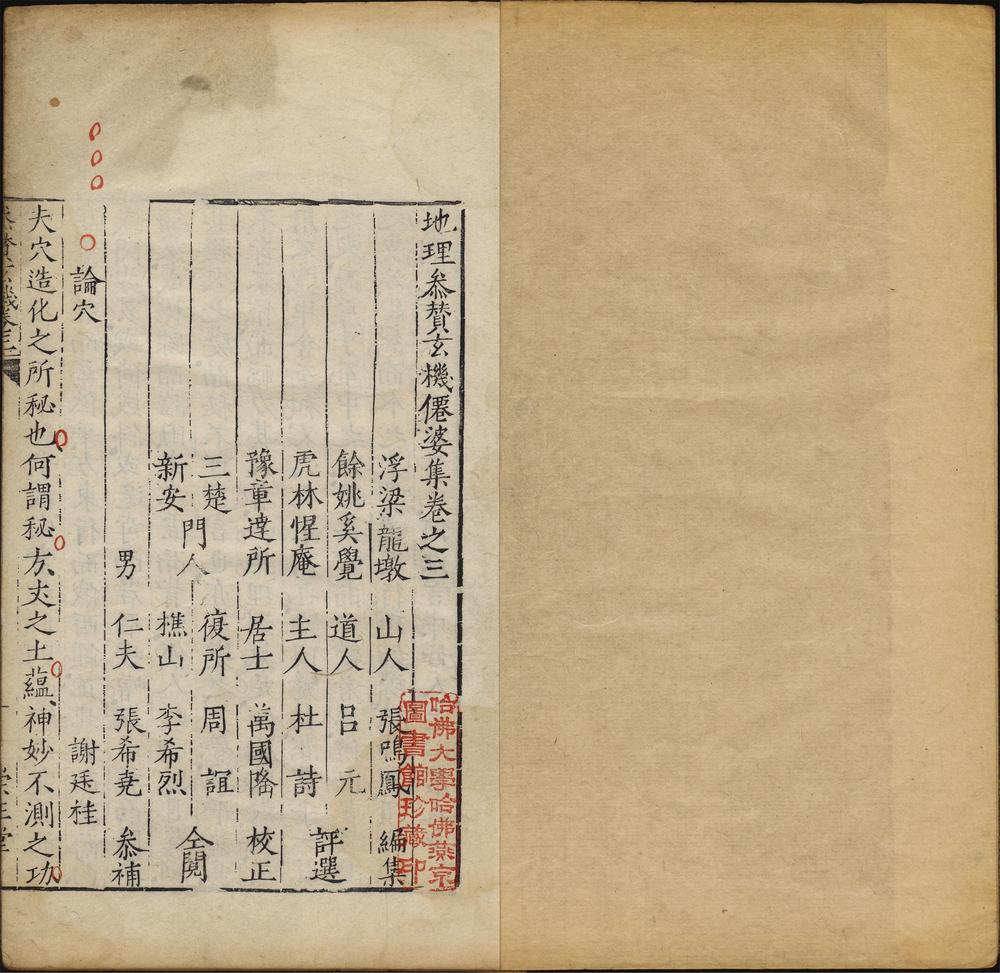 地理叅賛玄機僊婆集卷之三
浮梁龍墩 山人 張鳴鳳 編集
餘姚奚覺 道人 呂元
虎林惺庵 主人 杜詩 評選
豫章違所 居士 萬國隆 校正
三楚 復所 周誼
門人 仝閱
新安 樵山 李希烈
男 仁夫 張希堯 叅補
論穴 謝廷桂
夫穴造化之所秘也何謂秘方夫之土蘊神妙不測之功
哈佛大學哈佛燕京
圖書館珍藏印